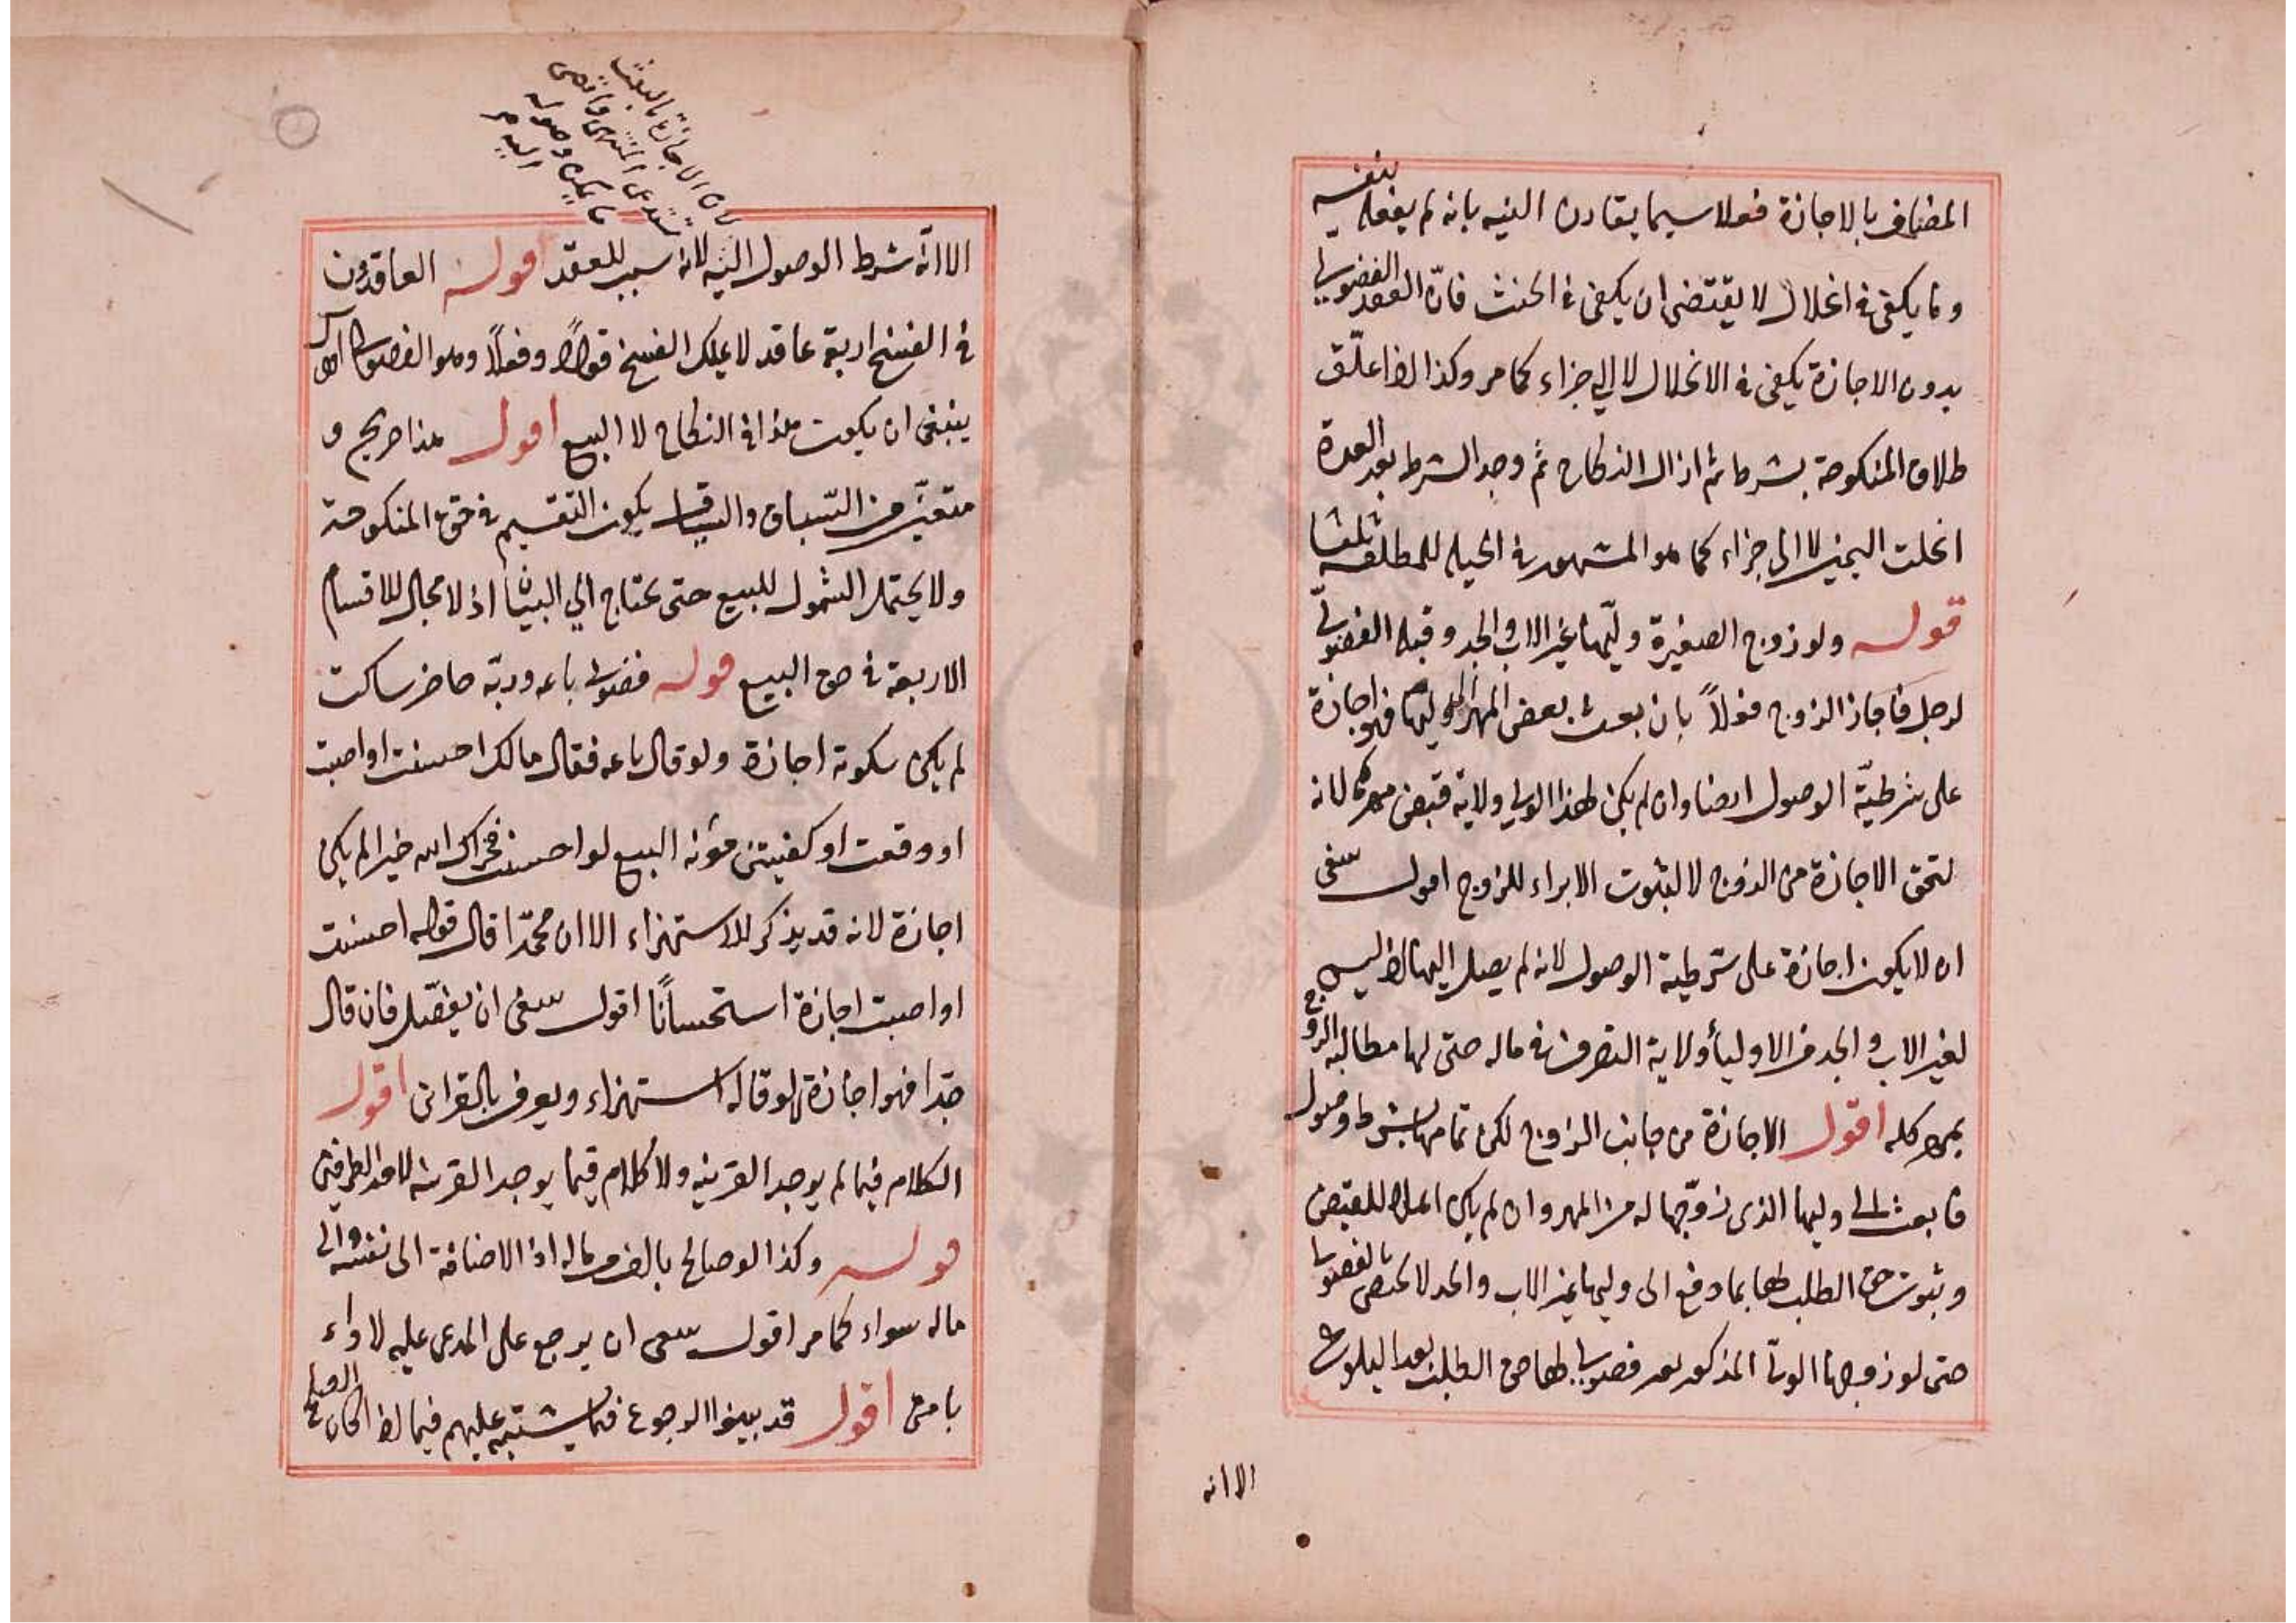 المضاف بالاجازة فعلا سيما يقارن النيه بانه لم يفعله بنفسه
وما يكفى فى انحلال لا يقتضى ان يكفى فى الحنث فانّ العقد الفضولى
بدون الاجازة يكفى فى الانحلال لا الى جزاء كما مر وكذا اذا علّق
طلاق المنكوحة بشرط ثم ازال النكاح ثم وجد الشرط بعد العدة
انحلت اليمين لا الى جزاء كما هو المشهور فى الحيله للمطلقه ثلثا
قوله ولو زوج الصغيرة وليّها غير الاب والجد وقبله الفضولى
لرجل فاجاز الزوج فعلاً بان بعث بعض المهر الى وليها فهو اجازة
على شرطيّة الوصول ايضا وان لم يكن لهذا الولى ولاية قبض مهرها لانه
لتحقق الاجازة من الزوج لا لثبوت الابراء للزوج اقول ينبغى
ان لا يكون اجازة على شرطية الوصول لانه لم يصل اليها اذ ليس
لغير الاب والجد من الاولياء ولاية التصرف فى ماله حتى لها مطالبة الزوج
بمهر كله اقول الاجازة من جانب الزوج لكن تمامها بشرط وصول
ما بعث الى وليها الذى زوّجها له من المهر وان لم يكن اهلا للقبض
وثبوت حق الطلب لها بما دفع الى وليها غير الاب والجد لا يختص بالفضولى
حتى لو زوجها الولى المذكور فضولى لها حق الطلب بعد البلوغ
الا انه
لان الاجازة بالبعث
تستدعى المنتهى واقصى
ما يمكن وصوله
اليه
الا انّه شرط الوصول اليه لانه سبب للعقد قوله العاقدون
فى الفسخ اربعة عاقد لا يملك الفسخ قولاً وفعلاً وهو الفضولى
ينبغى ان يكون هذا فى النكاح لا البيع اقول هذا صريح و
متعيّن من السّباق والسياق يكون التقسيم فى حق المنكوحة
ولا يحتمل الشمول للبيع حتى يحتاج الى البيان اذ لا مجال للاقسام
الاربعة فى حق البيع قوله فضولى باعه وربّه حاضر ساكت
لم يكن سكوته اجازة ولو قال باعه فقال مالك احسنت او اصبت
او وقعت او كفيتنى مؤنه البيع لو احسنت فجزاك الله خيرا لم يكن
اجازة لانه قد يذكر للاستهزاء الا ان محمّدا قال قوله احسنت
او اصبت اجازة استحسانًا اقول ينبغى ان يفصّل فان قال
جدا فهو اجازة لا لو قاله استهزاء ويعرف بالقرائن اقول
الكلام فيما لم يوجد القرينه ولا كلام فيما يوجد القرينه لاحد الطرفين
قوله وكذا لو صالح بالف من ماله اذ الاضافة الى نفسه والى
ماله سواء كما مر اقول ينبغى ان يرجع على المدعى عليه لاداء
بامره اقول قد بينوا الرجوع فيما يشتبه عليهم فيما اذا كان الصلح